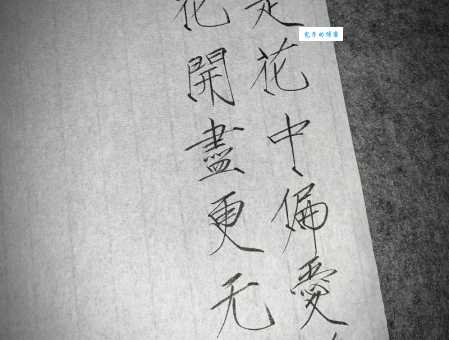 是花中偏愛
花開盡更无